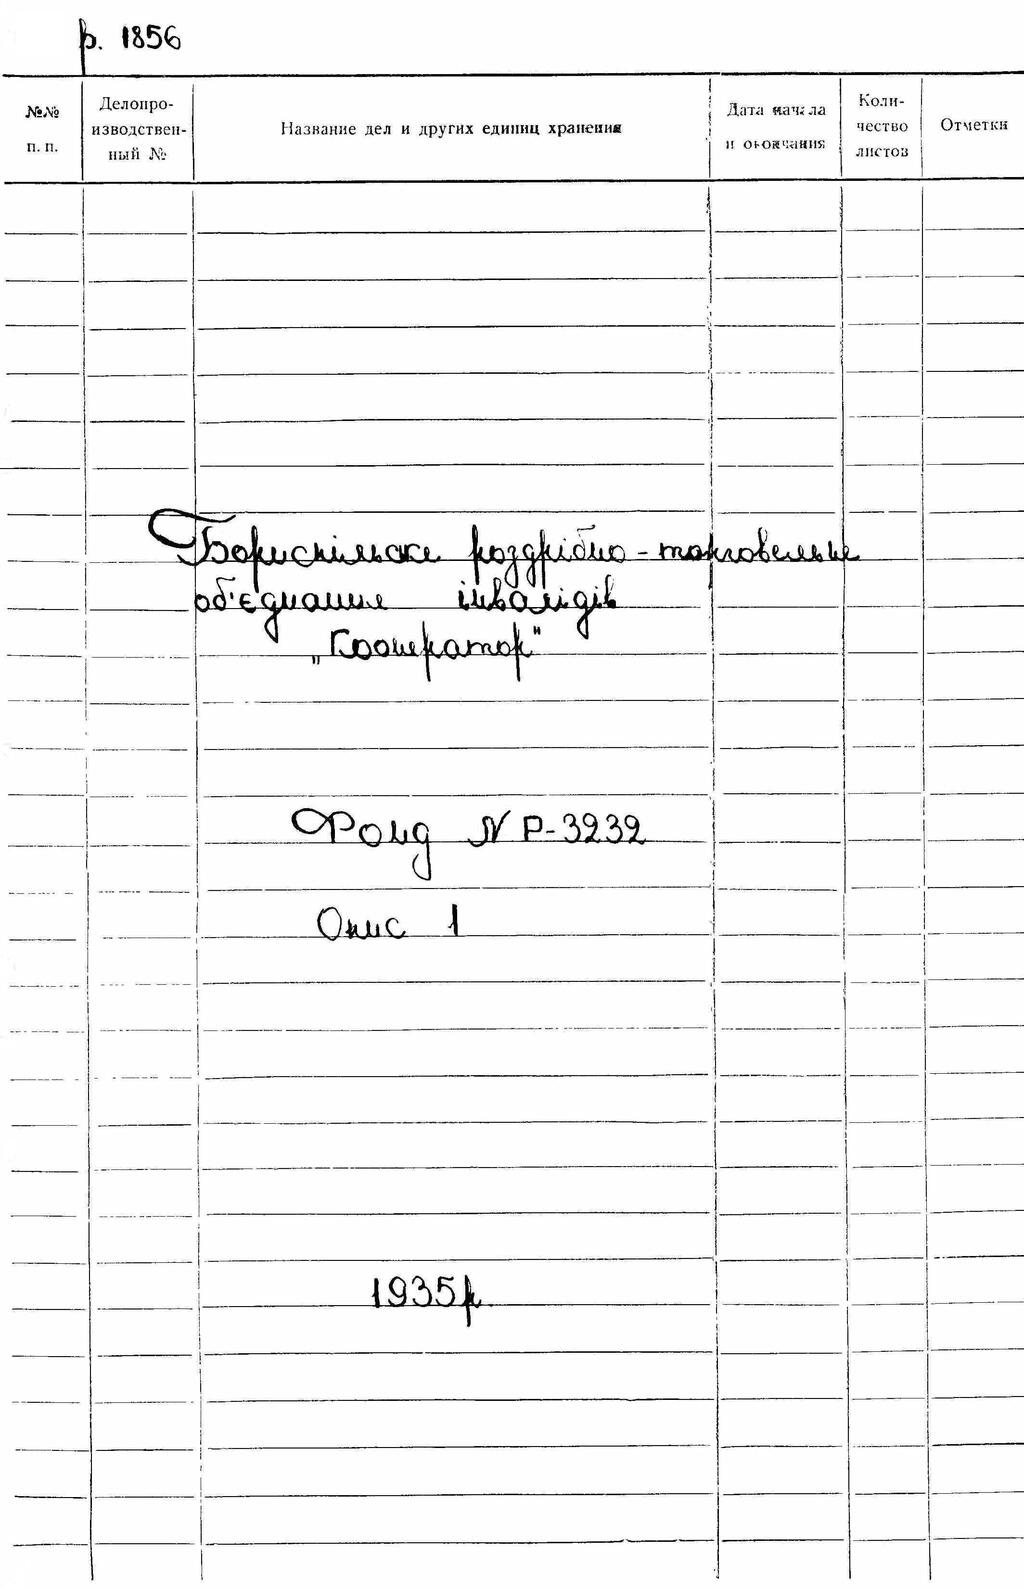 р. 1856
№№ п. п.
Делопро-
изводствен-
ный №
Название дел и других единиц хранения
Дата начала
и окончания
Коли-
чество
листов
Отметки
Бориспільське роздрібно-торговельне
об'єднання інвалідів
„Кооператор"
Фонд N Р-3232
Опис 1
1935р.